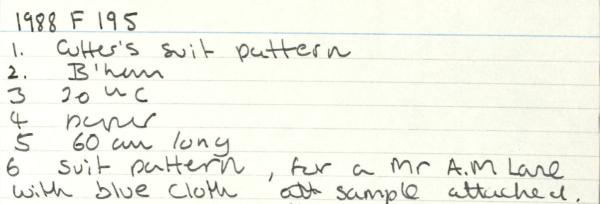 1988 F 195
1. Cutter's suit pattern
2. B'ham
3 20th C
4 paper
5 60 cm long
6 suit pattern, for a Mr A.M Lane
with blue cloth sample attached.